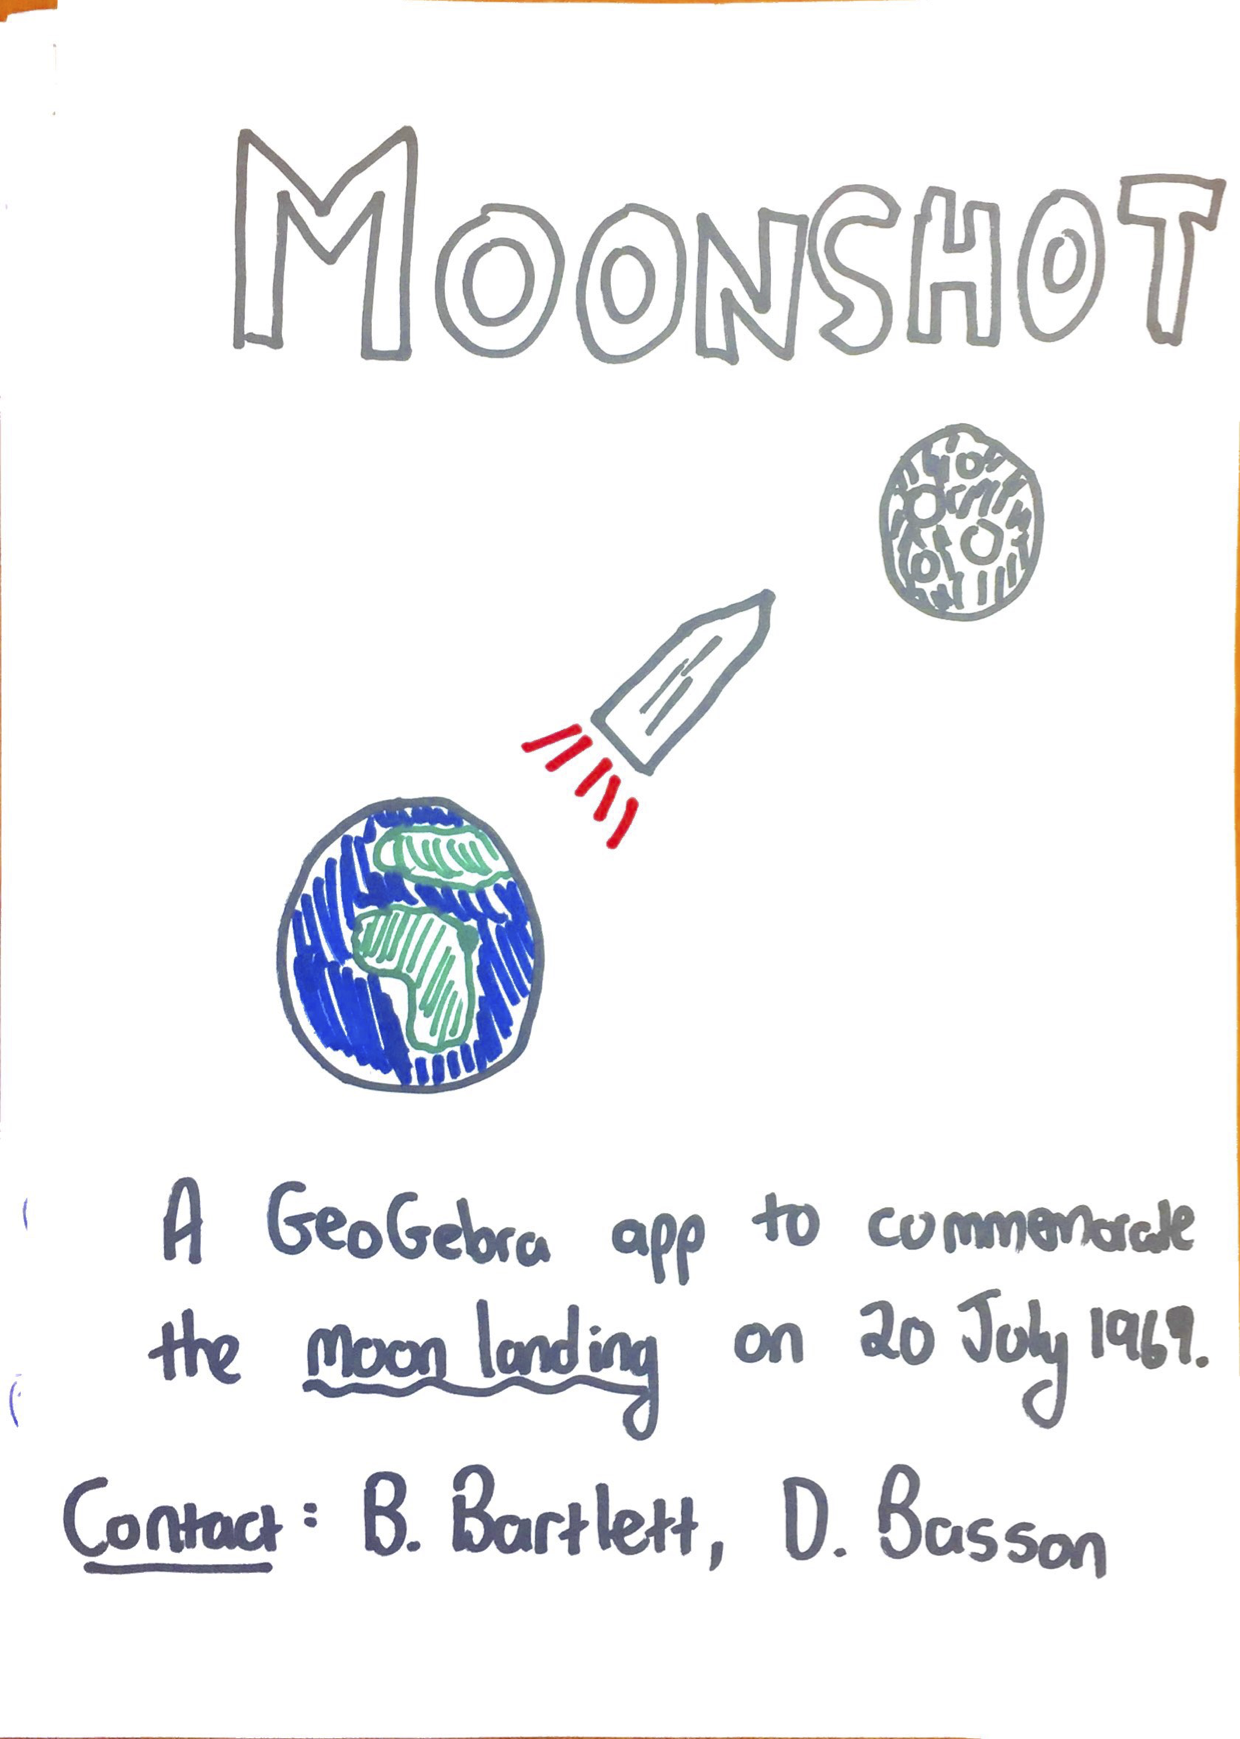 MOONSHOT
A GeoGebra app to commemorate
the moon landing on 20 July 1969.
Contact: B. Bartlett, D. Basson